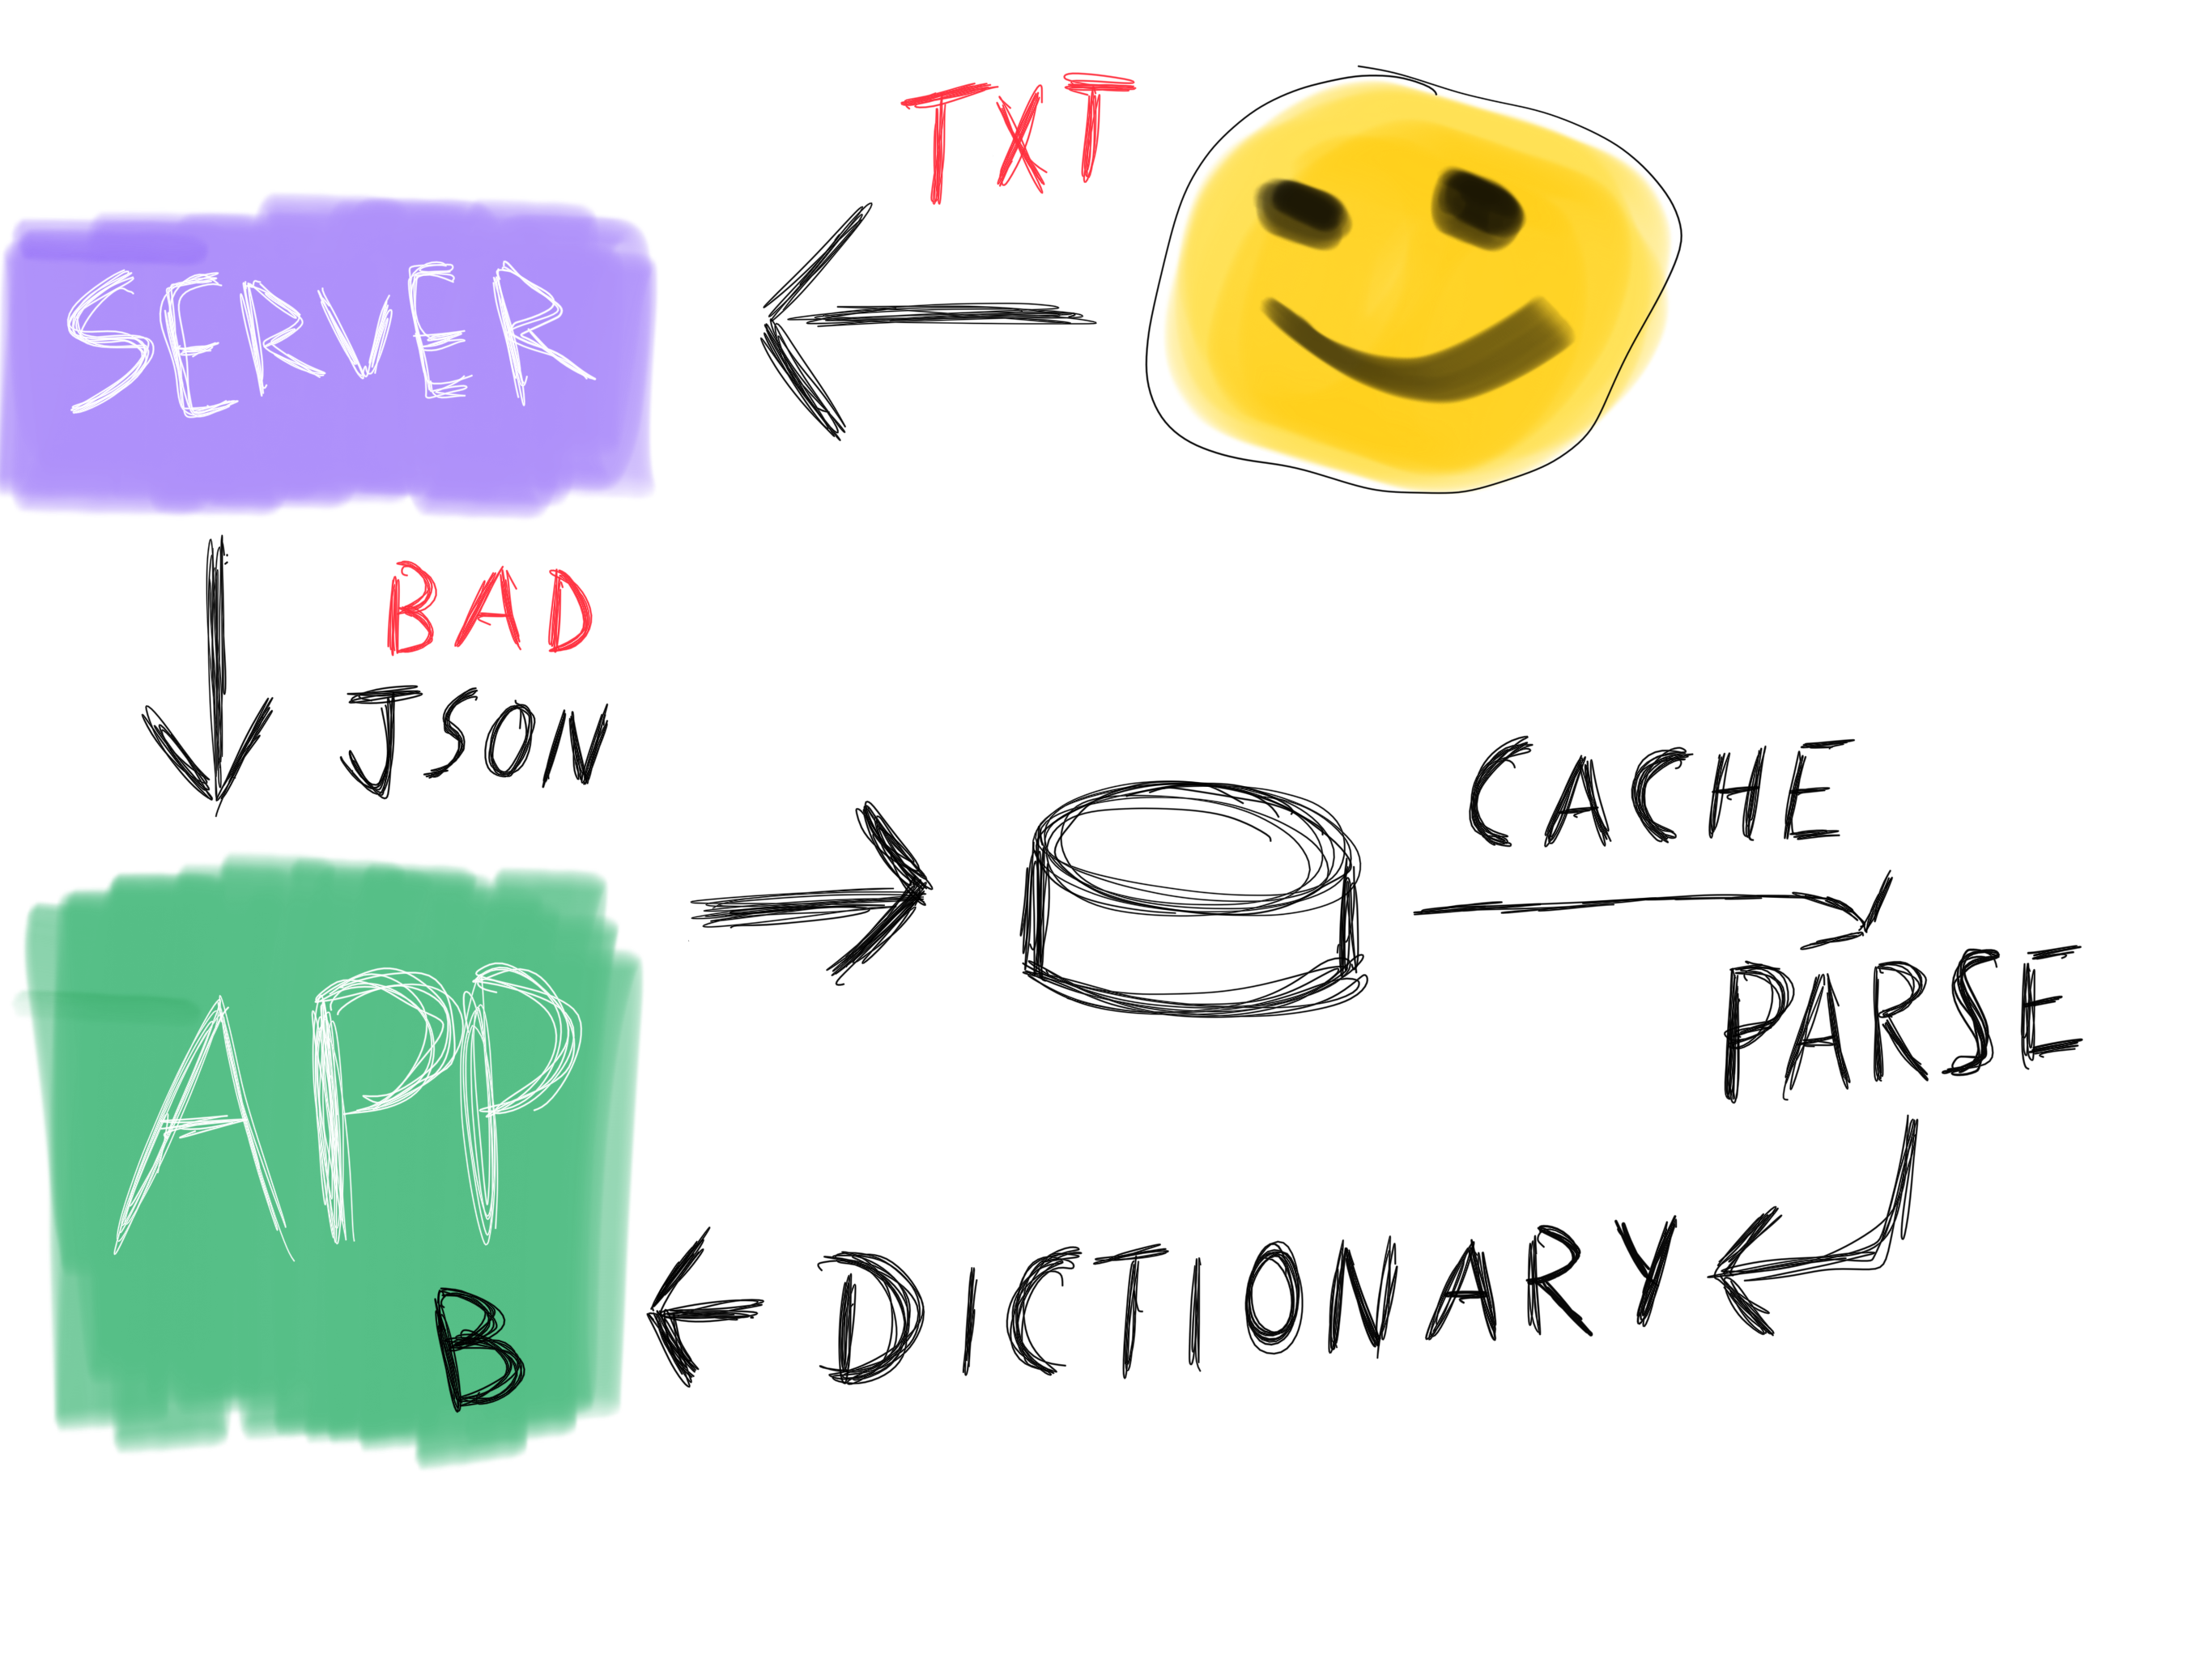 TXT
SERVER
BAD
JSON
CACHE
PARSE
APP
DICTIONARY
B